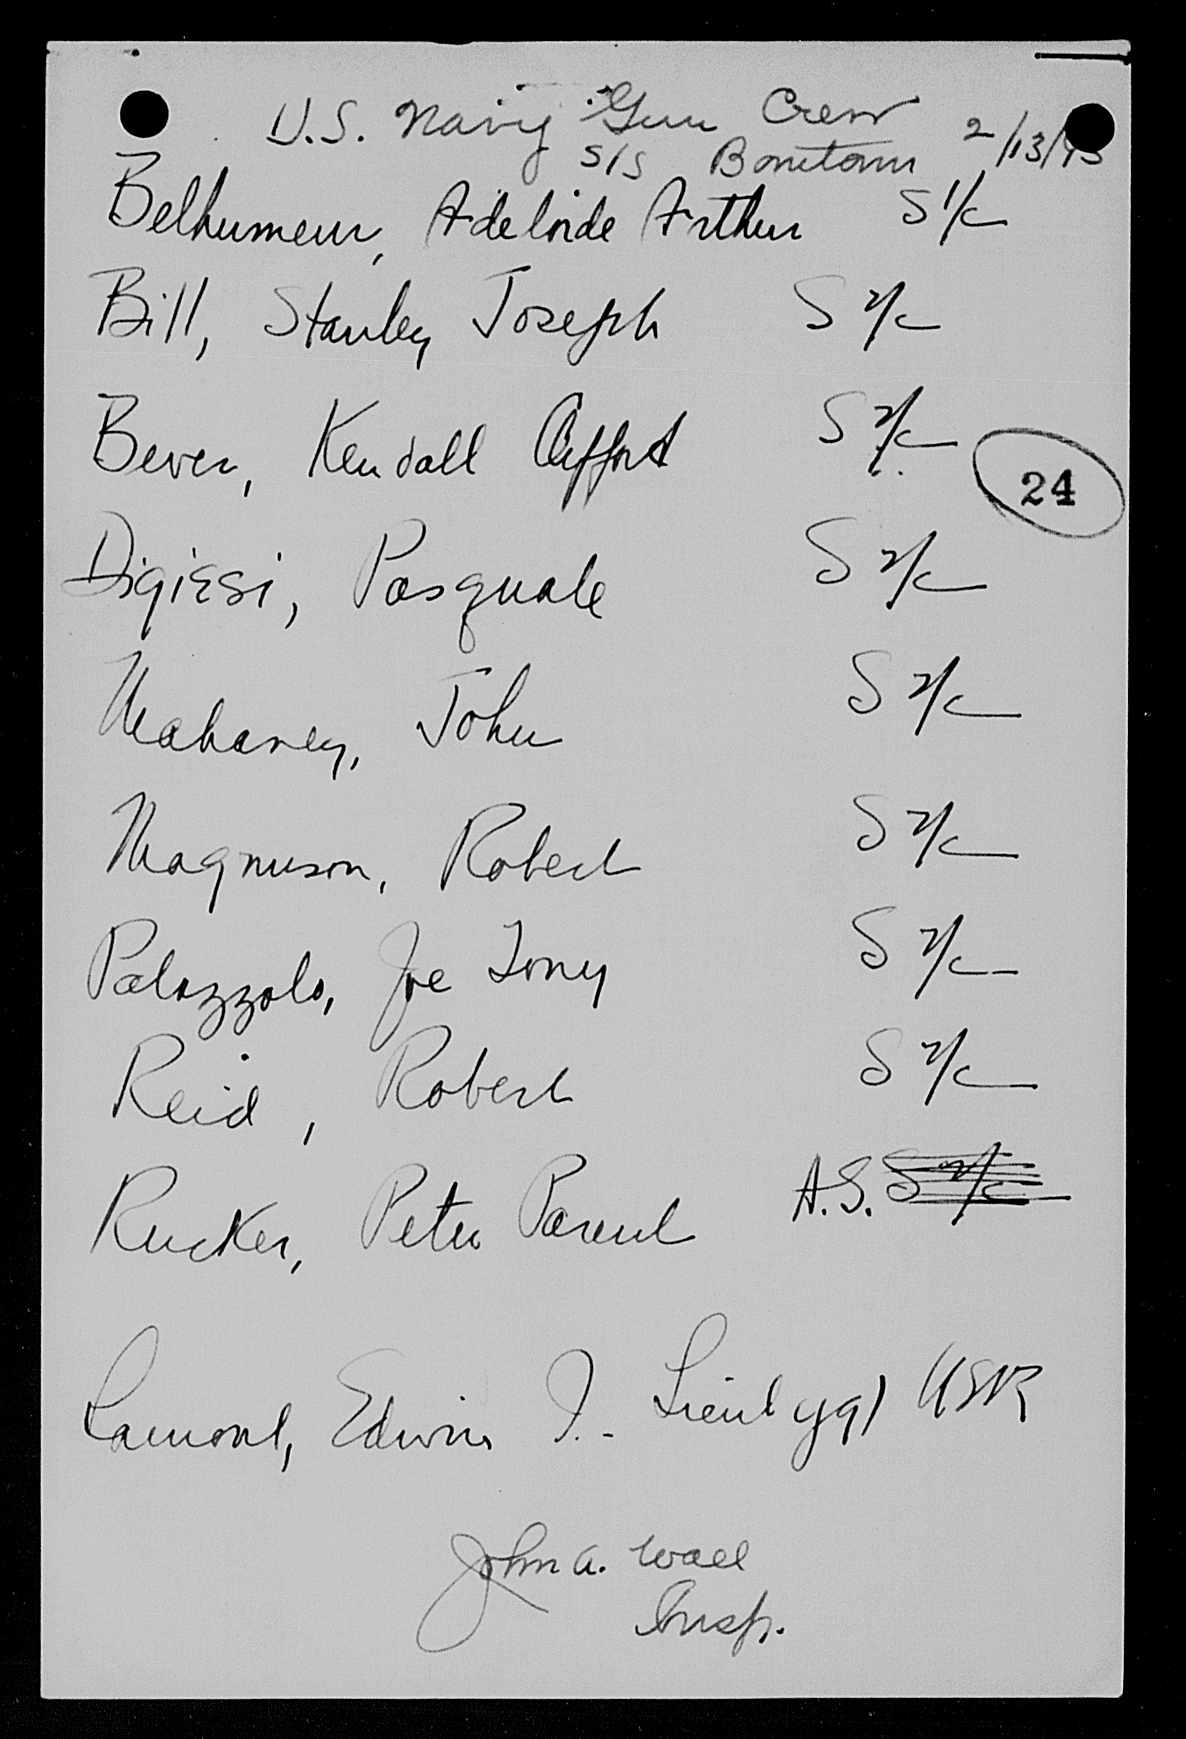 U.S. Navy Gun Crew
S/S Bonetown 2/13/45
Belhumeur, Adeloide Arthur S 1/c
Bill, Stanley Joseph S 2/c
Bever, Kendall Clifford S 2/c
24
Digiesi, Pasquale S 2/c
Mahaney, John S 2/c
Magnuson, Robert S 2/c
Palazzolo, Joe Tony S 2/c
Reid, Robert S 2/c
Rucker, Peter A.S. S 2/c
Lamont, Edwin J. Lieut (jg) USNR
John A. Wall
Insp.